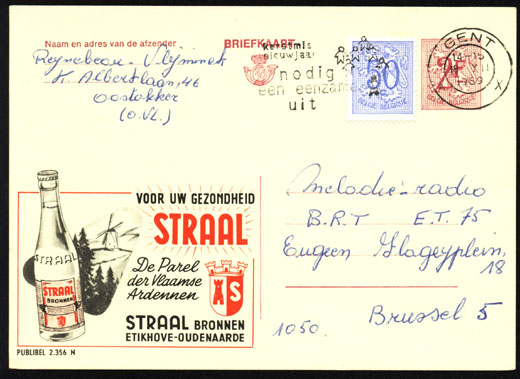 Naam en adres van de afzender
BRIEFKAART
Reynebeau - Vlijminck
K. Albertlaan, 46
Oostakker
(O.Vl.)
kerstmis
nieuwjaar
nodig
een eenzame
uit
50
BELGIE-BELGIQUE
2F
GENT
14-15
1969
X
VOOR UW GEZONDHEID
STRAAL
De Parel
der Vlaamse
Ardennen
STRAAL
STRAAL
BRONNEN
A S
STRAAL BRONNEN
ETIKHOVE-OUDENAARDE
PUBLIBEL 2.356 N
Melodie-radio
B.R.T E.T. 75
Eugeen Flageyplein,
18
1050. Brussel 5